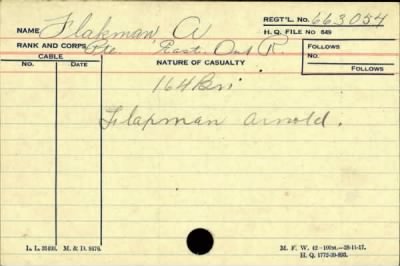 NAME Flakman A REGT'L. No. 663054
H. Q. FILE No 649
RANK AND CORPS Pte East. Ont R.
CABLE
No. DATE
NATURE OF CASUALTY
FOLLOWS
No.
FOLLOWS
164 Bn
Flapman Arnold.
L. L. M. & D.
M. F. W. 42
H. Q. 1772-39-893.